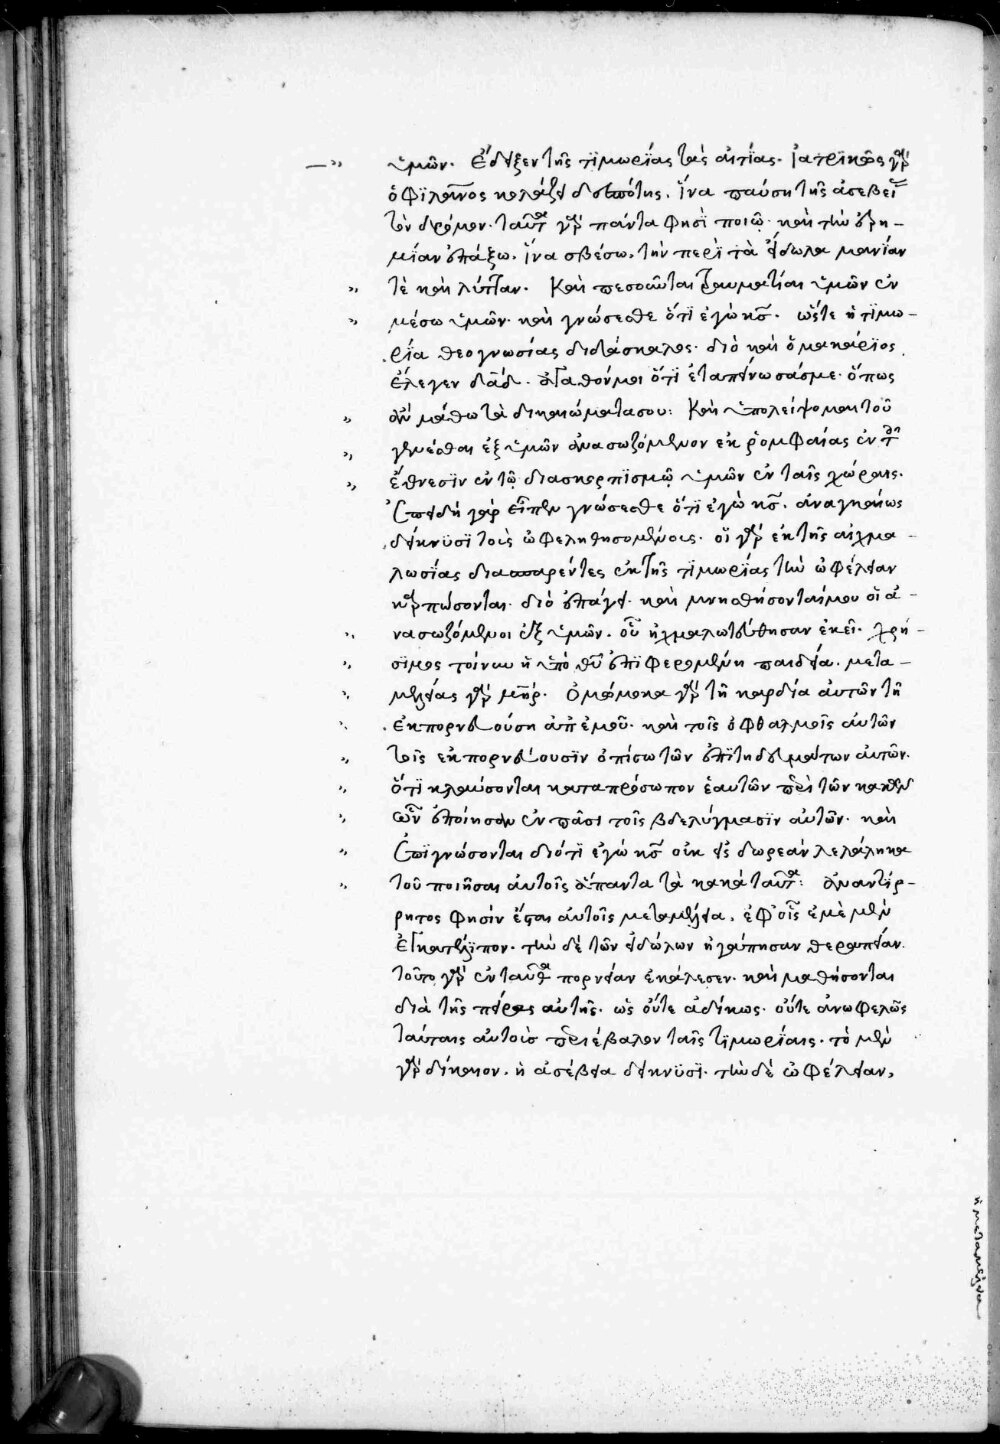 ὑμῶν. Ἔδειξεν τῆς τϊμωρίας τὰς αἰτίας. ἰατρϊκῶς γὰρ
ὁ φϊλάνος κολάζει δεσπότης. ἵνα παύση τῆς ἀσεβεί
τὸν δρόμον. ταῦτα γὰρ πάντα φησὶ ποιῶ. καὶ τὴν ἐρη-
μίαν ἐπάξω. ἵνα σβέσω. τὴν περὶ τὰ εἴδωλα μανίαν
τὲ καὶ λύτταν. Καὶ πεσοῦνται τραυματίαι ὑμῶν ἐν
μέσω ὑμῶν. καὶ γνώσεσθε ὅτι ἐγὼ κς. ὥστε ἡ τϊμω-
ρία θεογνωσίας διδάσκαλος. διὸ καὶ ὁ μακάρϊος
ἔλεγεν δᾱδ. ἀγαθόν μοι ὅτϊ ἐταπείνωσάς με. ὅπως
ἂν μάθω τὰ δικαιώματά σου: Καὶ ὑπολείψομαι τοῦ
γενέσθαι ἐξ ὑμῶν ἀνασωζόμενον ἐκ ῥομφαίας ἐν τοῖς
ἔθνεσϊν ἐν τῶ διασκορπϊσμῶ ὑμῶν ἐν ταῖς χώραις.
Ἐπειδὴ γὰρ εἶπεν γνώσεσθε ὅτϊ ἐγὼ κς. ἀναγκαίως
δείκνυσϊ τοὺς ὠφεληθησομένους. οἱ γὰρ ἐκ τῆς αἰχμα-
λωσίας διασπαρέντες ἐκ τῆς τϊμωρίας τὴν ὠφέλειαν
καρπώσονται. διὸ ἐπάγει. καὶ μνησθήσονταί μου οἱ ἀ-
νασωζόμενοι ἐξ ὑμῶν. οὗ ἠχμαλωτεύθησαν ἐκεῖ. χρή-
σϊμος τοίνυν ἡ ὑπὸ θυ ἐπϊφερομένη παιδεία. μετα-
μελείας γὰρ μηρ. Ὀμώμοκα γὰρ τῆ καρδία αὐτῶν τῆ
ἐκπορνευούση ἀπ' ἐμοῦ. καὶ τοῖς ὀφθαλμοῖς αὐτῶν
τοῖς ἐκπορνεύουσϊν ὀπίσω τῶν ἐπϊτηδευμάτων αὐτῶν.
ὅτϊ κλαύσονται κατα πρόσωπον ἑαυτῶν περὶ τῶν κακῶν
ὧν ἐποίησαν ἐν πᾶσι τοῖς βδελύγμασϊν αὐτῶν. καὶ
ἐπϊγνώσονται διότϊ ἐγώ κς οὐκ εἰς δωρεὰν λελάληκα
τοῦ ποιῆσαι αὐτοῖς ἅπαντα τὰ κακὰ ταῦτα: Ἀναντίρ-
ρητος φησὶν ἔσται αὐτοῖς μεταμέλεια. ἐφ' οἷς ἐμὲ μὲν
ἐγκατέλϊπον. τὴν δὲ τῶν εἰδώλων ἠγάπησαν θεραπείαν.
τοῦτο γὰρ ἐνταῦθα πορνείαν ἐκάλεσεν. καὶ μαθήσονται
διὰ τῆς πείρας αὐτῆς. ὡς οὔτε ἀδίκως. οὔτε ἀνωφελῶς
ταύταις αὐτοὺς περιέβαλον ταῖς τϊμωρίαις. τὸ μὲν
γὰρ δίκαιον. ἡ ἀσέβεια δείκνυσϊ. τὴν δὲ ὠφέλειαν,
ἡ μεταμέλεια